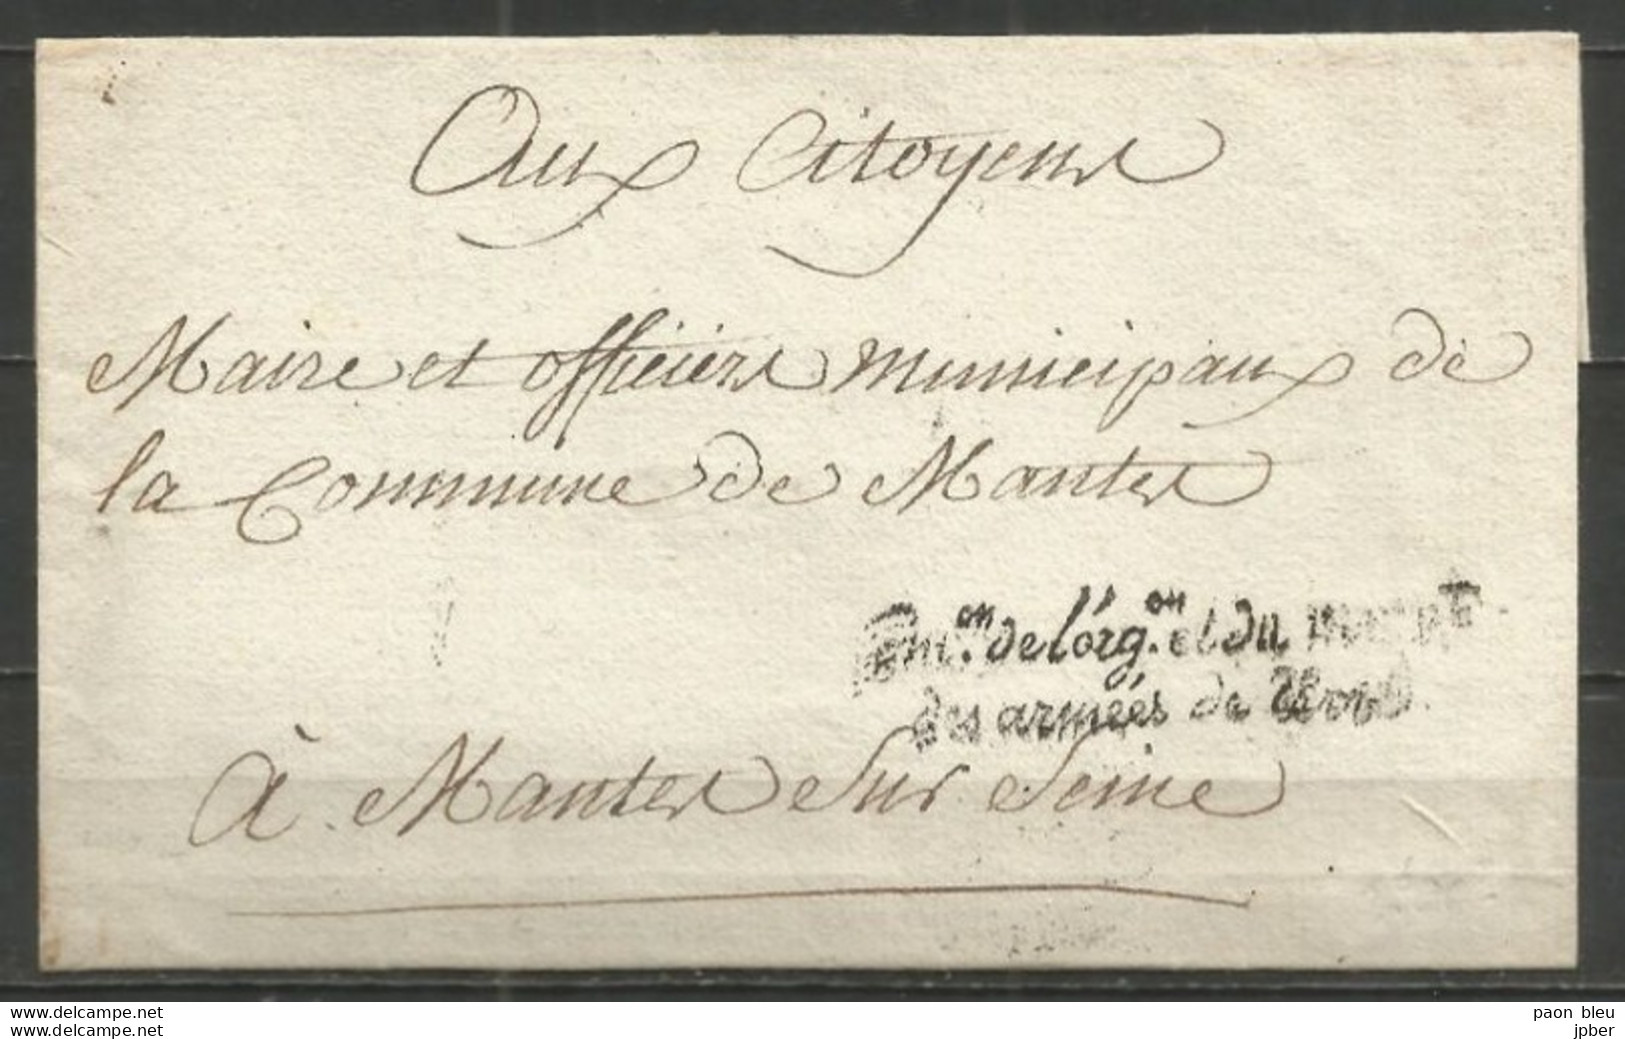 Aux Citoyens
Maire et officiers municipaux de
la Commune de Mantes
Com.on de l'org.on et du mouv.t
des armées de terre
à Mantes sur Seine
www.delcampe.net
www.delcampe.net
paon bleu
jpber